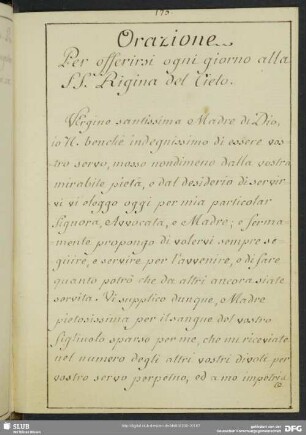 175.
Orazione
Per offerirsi ogni giorno alla
SS. Rigina del Cielo.
Vergine santissima Madre di Dio,
io N. benchè indegnissimo di essere vos-
tro servo, mosso nondimeno dalla vostra
mirabile pietà, e dal desiderio di servir
vi vi eleggo oggi per mia particolar
Signora, Avvocata, e Madre; e ferma-
mente propongo di volervi sempre se-
guire, e servire per l'avvenire, e di fare
quanto potrò che da altri ancora siate
servita. Vi supplico dunque, o Madre
pietosissima per il sangue del vostro
Figliuolo sparso per me, che mi riceviate
nel numero degli altri vostri divoti per
vostro servo perpetuo, ed a me impetria
SLUB
DFG